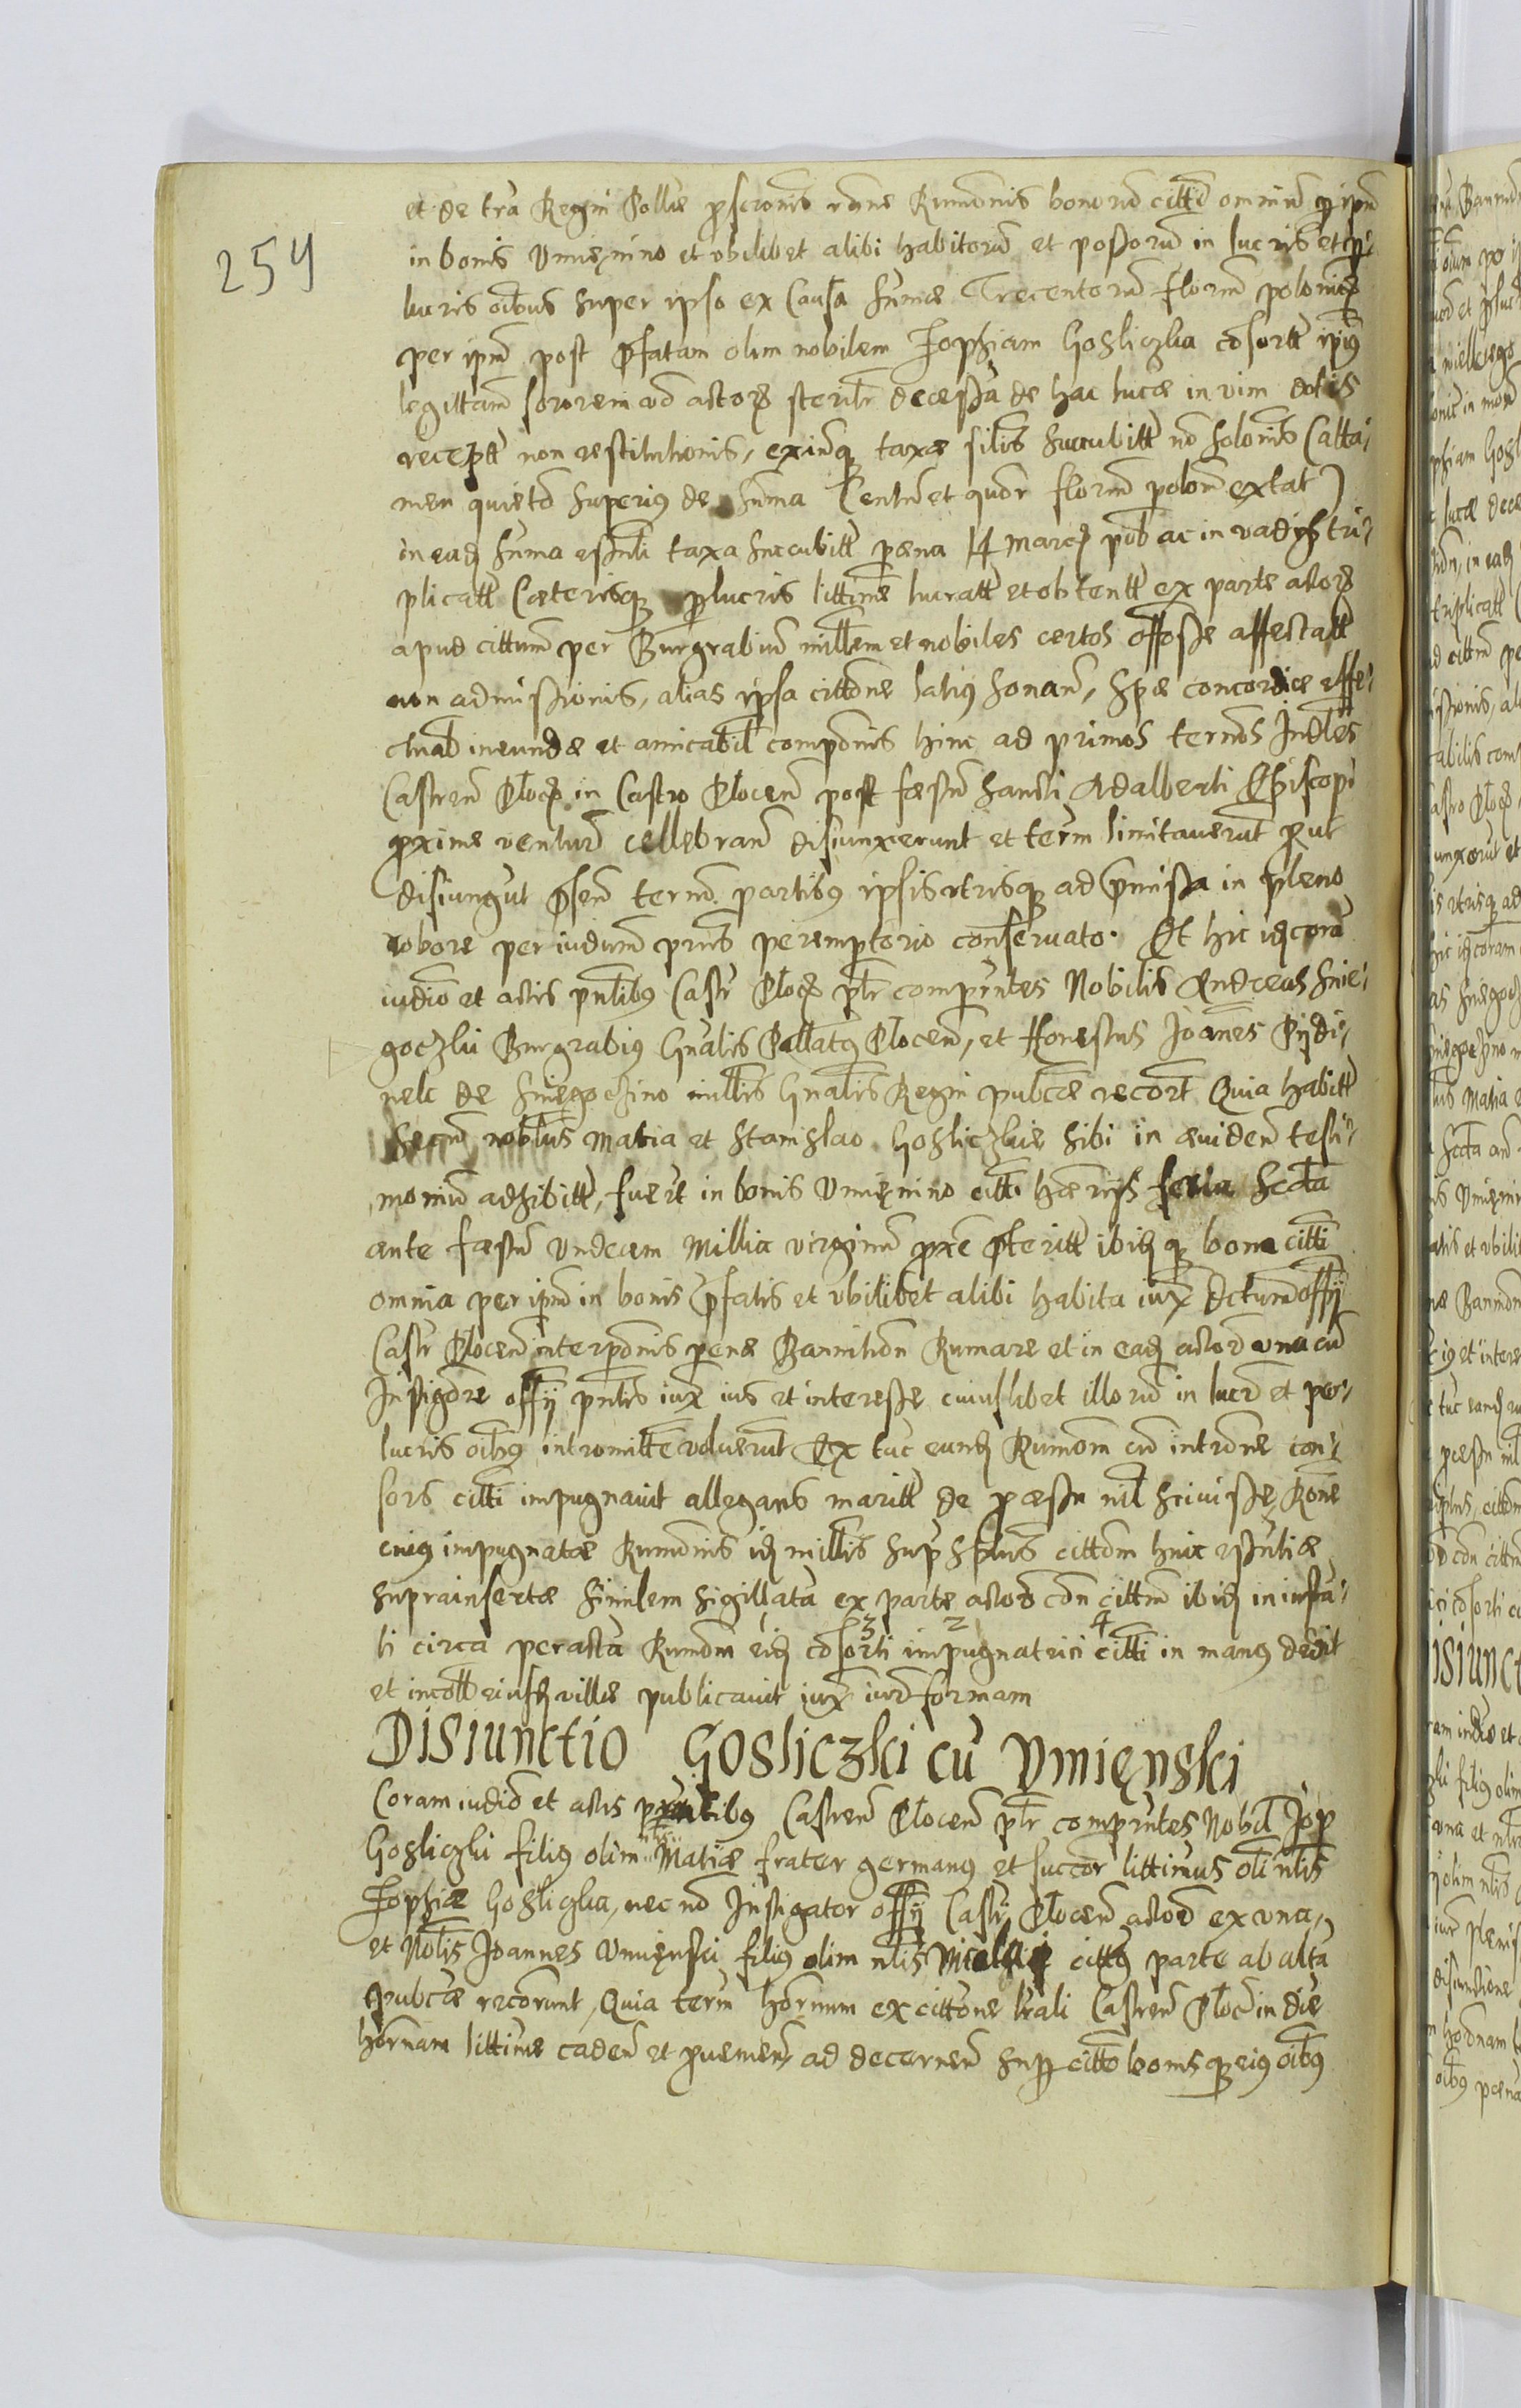 254
et de tra Regni Pollie pscronis rone Rumonis bonoru citti omniu p ipm
in bonis Umienino et ubilibet alibi habitoru et possoru in lucris et p
lucris oibus super ipso ex Causa sumae Trecentoru florm polonic
per ipm post pfatam olim nobilem Zophiam Gosliczka cosortt ipius
legittam sororem ad actors sterilr decessa de hac luce in vim dotis
receptt non restitutionis, exinq taxae silis succubitt no solonis (atta
men quieto superius de suma Centu et quor florm polom extat)
in ead suma essnli taxa succubitt paena 14 marc pub ac in vadys tri
plicatt Caeterisq plucris littime lucratt et obtentt ex parte actors
apud cittum per Burgrabiu millem et nobiles certos offosse affectatt
non admissionis, alias ipsa cittone latius sonan, Spe concordiae effe
ctuab ineundae et amicabil compoonis hinc ad primos ternos Judles
Castren Ploc in Castro Plocen post faestu Sancti Adalberti Episcopi
pxime ventur cellebran disiunxerunt et term limitaverut put
disiungut psen term partibus ipsis utrisq ad pmissa in pleno
robore per iudium pnns peremptorio conservato. Et hic id cora
iudio et actis pnlibus Castr Ploc plr comprntes Nobilis Andreas Snie
goczki Burgrabius Gnalis Pallats Plocen, et Honestus Joanes Pydi
nek de Sniegoczino millis Gnalis Regni pubcae recort Quia habitt
Secum noblus Matia et Stanislao Gosliczkie sibi in evidens testi
moniu adhibitt, fuert in bonis Umienino citti haeriss feria Scda
ante faestu Undecem Millia virginu pxe pteritt ibid q bona citti
omnia per ipm in bonis pfatis et ubilibet alibi habita iux dctum offy
Castr Plocen interponis penae Bannition Rumare et in ead actor una cu
Instigore offy pnlis iux ius et interesse cuiuslibet illoru in lucr et per
lucris oibus intromitte voluerut Ex tuc eand Rumom cu introne con
sors citti impugnavit allegans maritt de pcessu nil scivisse, Rone
cuius impugnatae Rumonis id millis sup splus cittom huic essntiae
suprainsertae similem sigillata ex parte actor con cittm ibid in insta
ti circa peracta Rumom eid cosorti impugnatrici citti in manus dedit
3 2 4
et incoll eiusd villae publicavit iux iur formam
Disiunctio Gosliczki cu Umienski
Coram iudio et actis pntibus Castren Plocen plr comprntes Nobil Jop
Gosliczki filius olim nlis Matiae frater germanus et succor littimus oli nlis
Zophiae Gosliczka, nec no Instigator offy Castr Plocen actor ex una,
et Noblis Joannes Umienski filius olim nlis Nicolai cittus parte ab alta
pubcae recorunt, Quia term hornum ex cittone lrali Castren Ploc in die
hornam littime caden et pvenien, ad decernen sup citto bonisq eius oibus